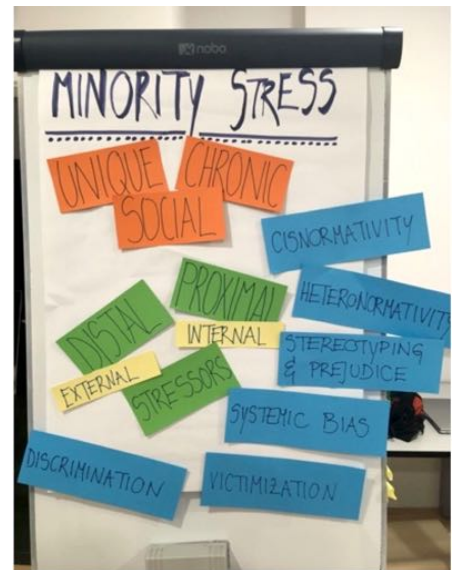 nobo
MINORITY STRESS
UNIQUE
CHRONIC
SOCIAL
CISNORMATIVITY
PROXIMAL
HETERONORMATIVITY
DISTAL
INTERNAL
STEREOTYPING
& PREJUDICE
EXTERNAL
STRESSORS
SYSTEMIC BIAS
DISCRIMINATION
VICTIMIZATION